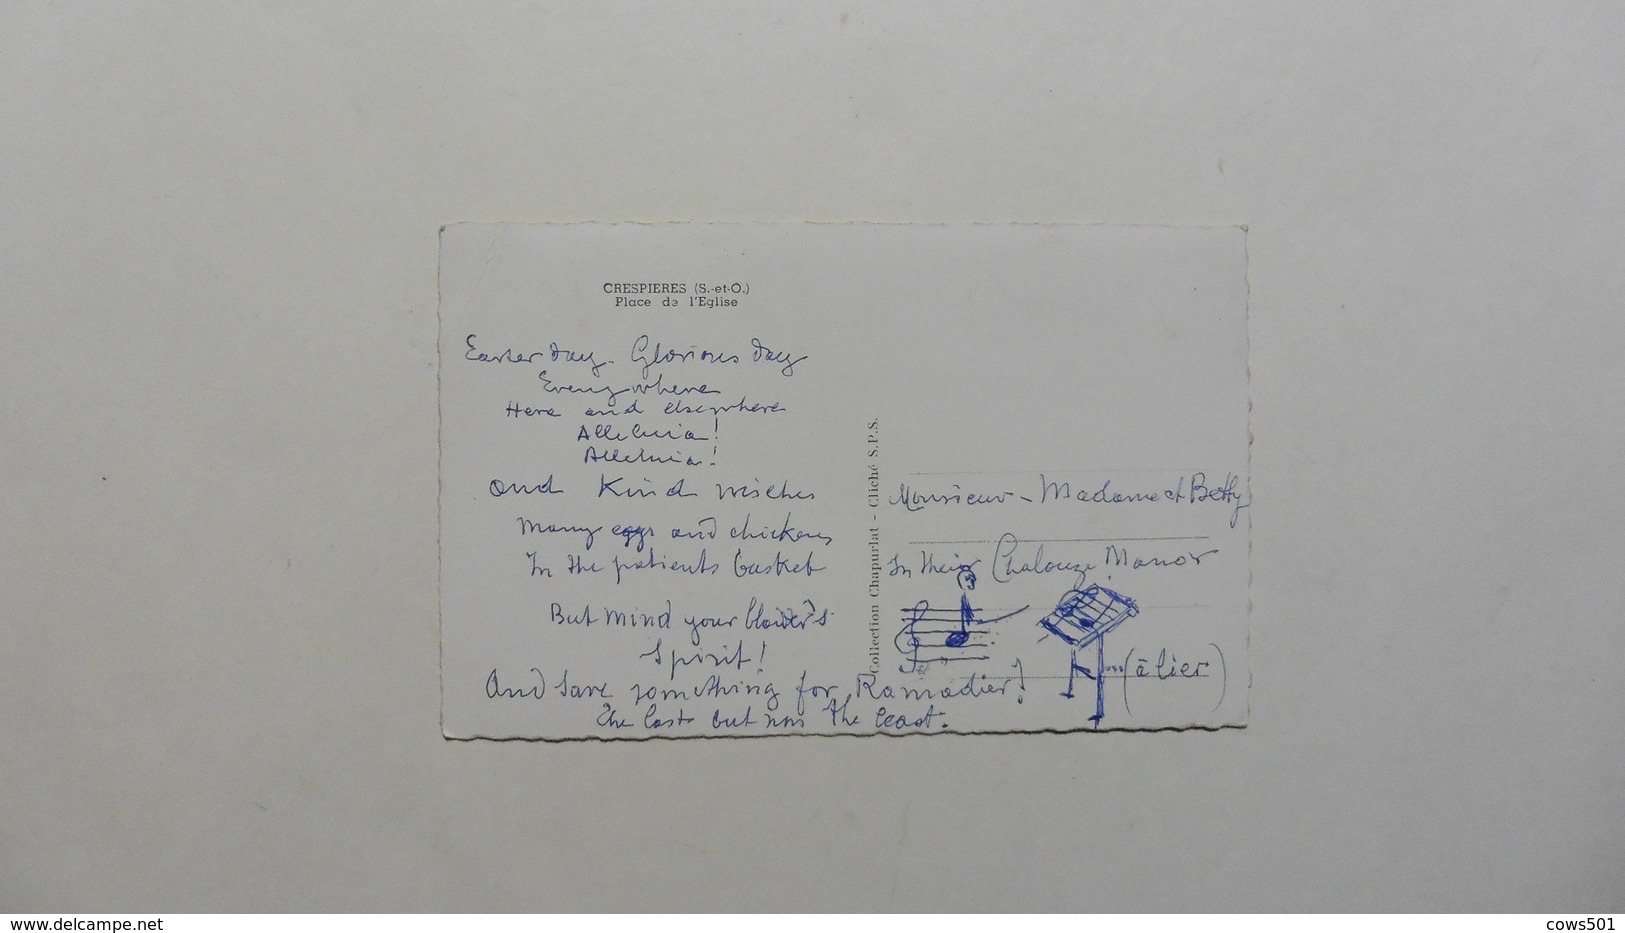 CRESPIERES (S.-et-O.)
Place de l'Eglise
Easter day. Glorious day
Everywhere
Here and elsewhere
Alleluia!
Alleluia!
and Kind wishes
Many eggs and chickens
In the patients basket
But mind your
Spirit!
And save something for Ramadier!
The last but non the least.
Collection Chapurlat - Cliché S.P.S.
Monsieur - Madame et Betty
In their Chalouze Manor
(à lier)
www.delcampe.net
cows501